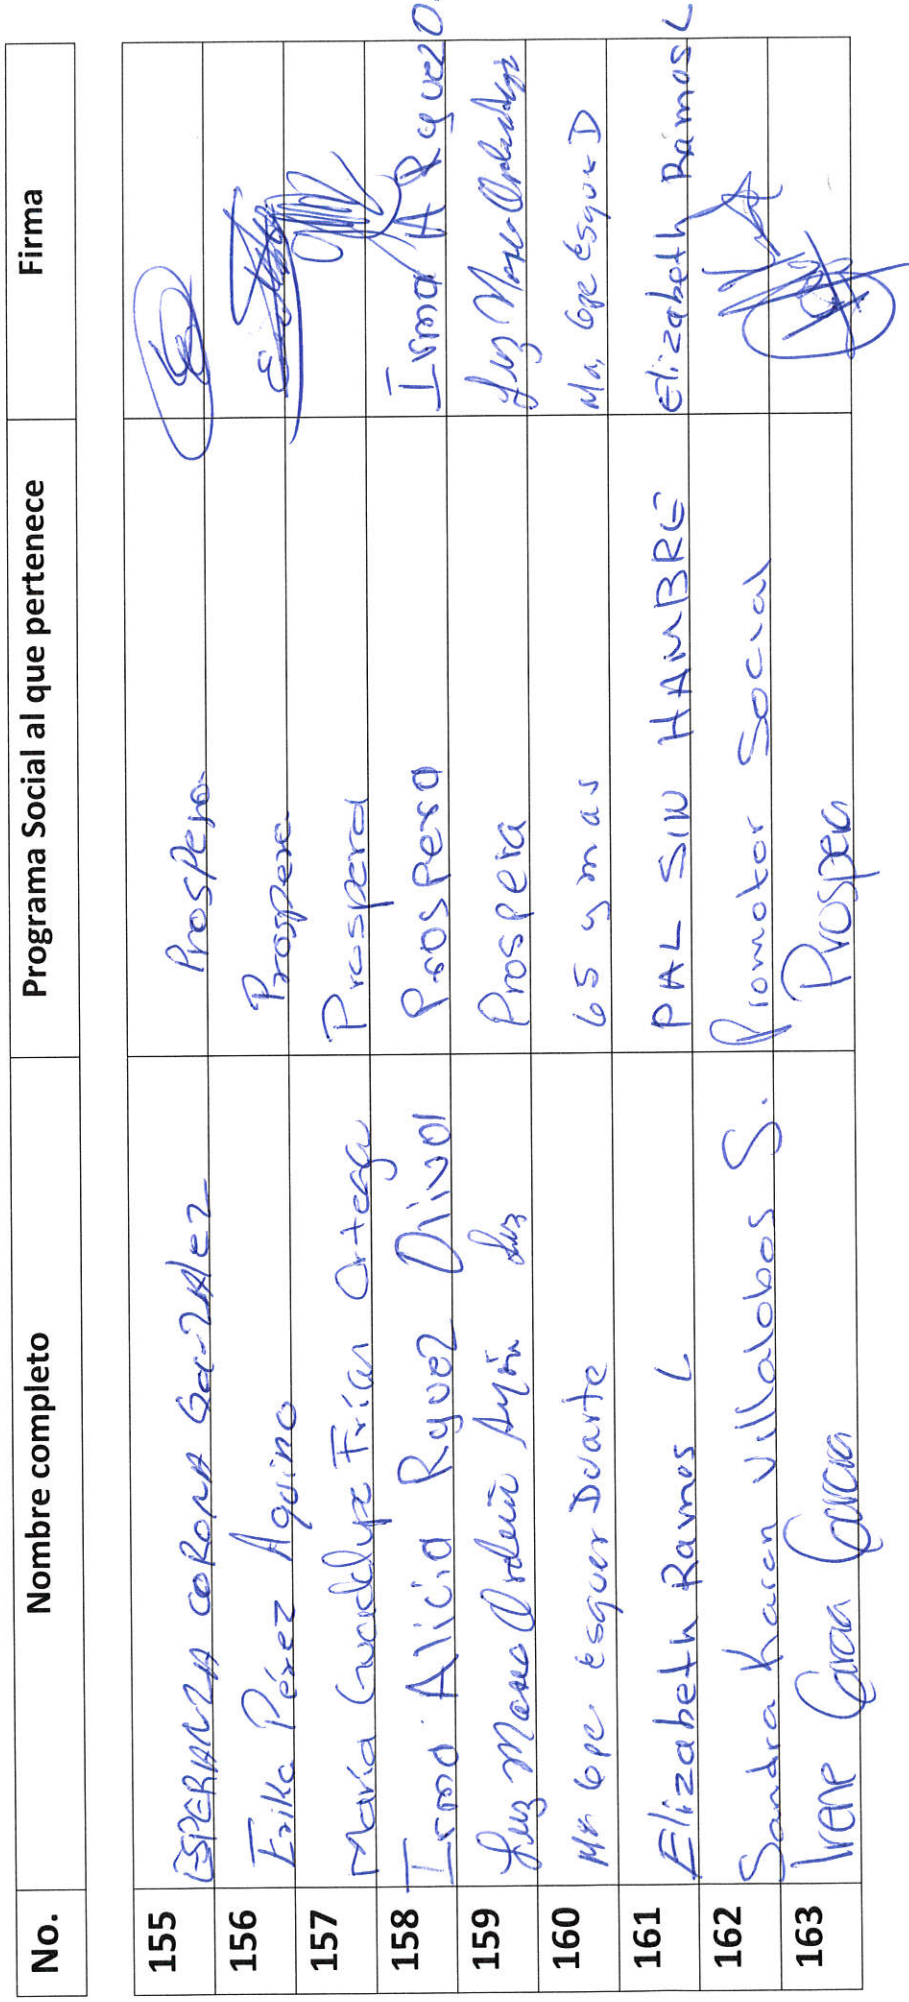 No. Nombre completo Programa Social al que pertenece Firma
155 ESPERANZA CORONA GonzAlez Prospera
156 Erika Pérez Aquino Prospera
157 María Guadalupe Frías Ortega Prospera
158 Irma Alicia Prospera Irma A
159 Luz Maria Prospera Luz
160 Ma Gpe Esquer Duarte 65 y mas Ma, Gpe Esquer D
161 Elizabeth Ramos L PAL SIN HAMBRE Elizabeth Ramos L
162 Sandra Karen Villalobos S. Promotor Social
163 Irene Garcia Garcia Prospera